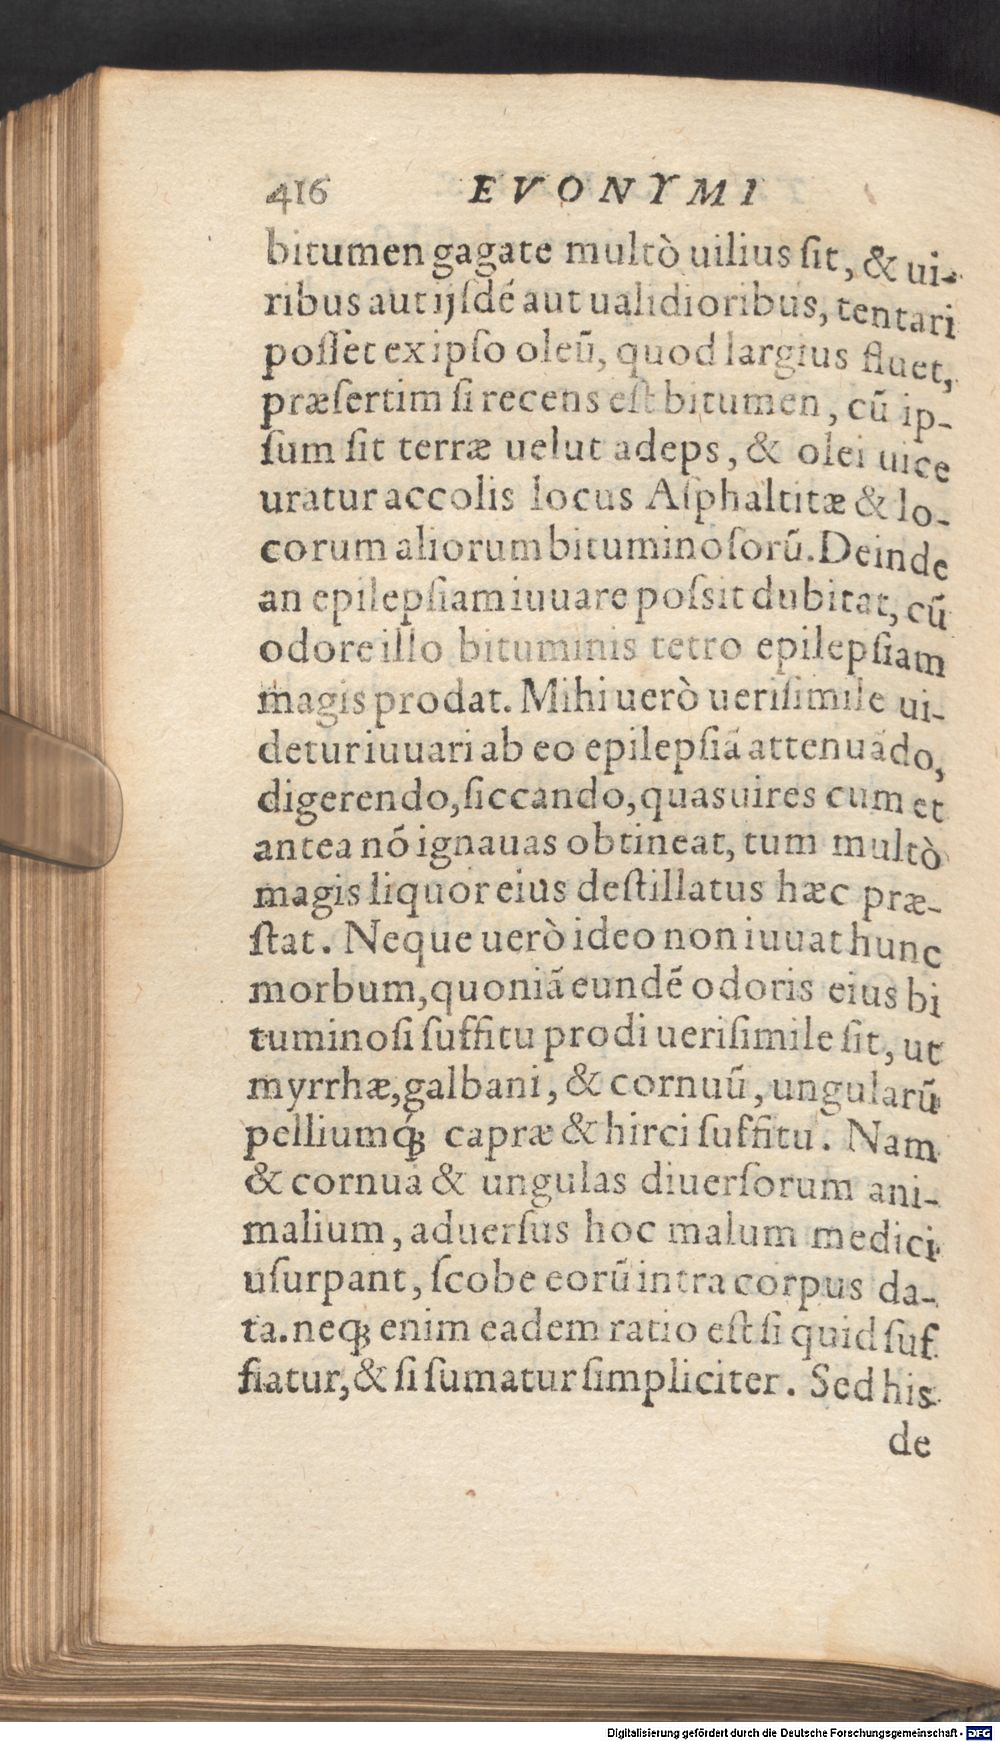 416 EVONYMI
bitumen gagate multò uilius ſit, & ui-
ribus aut ijſdẽ aut ualidioribus, tentari
poſſet ex ipſo oleũ, quod largius fluet,
præſertim ſi recens eſt bitumen, cũ ip-
ſum ſit terræ uelut adeps, & olei uice
uratur accolis locus Aſphaltitæ & lo-
corum aliorum bituminoſorũ. Deinde
an epilepſiam iuuare poſsit dubitat, cũ
odore illo bituminis tetro epilepſiam
magis prodat. Mihi uerò ueriſimile ui-
detur iuuari ab eo epilepſiã attenuãdo,
digerendo, ſiccando, quas uires cum et
antea nõ ignauas obtineat, tum multò
magis liquor eius deſtillatus hæc præ-
ſtat. Neque uerò ideo non iuuat hunc
morbum, quoniã eundẽ odoris eius bi
tuminoſi ſuffitu prodi ueriſimile ſit, ut
myrrhæ, galbani, & cornuũ, ungularũ
pelliumq́ꝫ capræ & hirci ſuffitu. Nam
& cornua & ungulas diuerſorum ani-
malium, aduerſus hoc malum medici
uſurpant, ſcobe eorũ intra corpus da-
ta. neqꝫ enim eadem ratio eſt ſi quid ſuf
fiatur, & ſi ſumatur ſimpliciter. Sed his
de
Digitalisierung gefördert durch die Deutsche Forschungsgemeinschaft - DFG